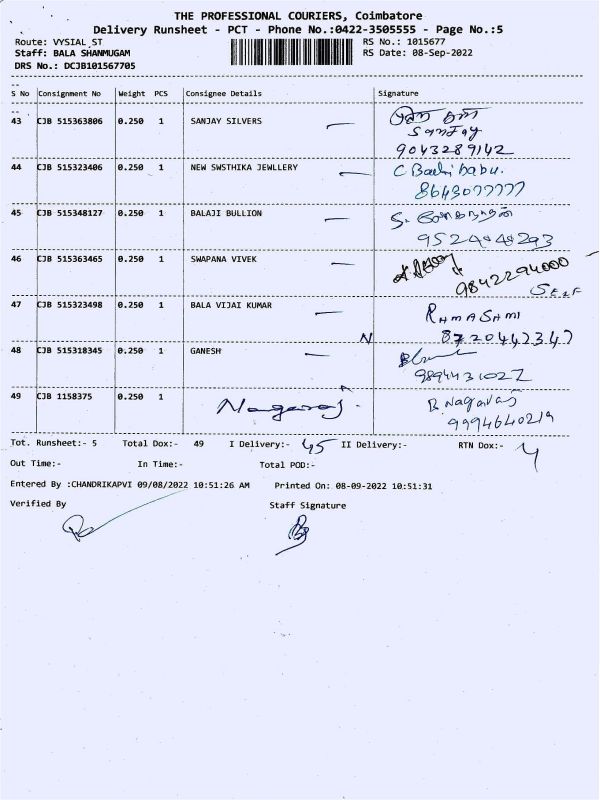 THE PROFESSIONAL COURIERS, Coimbatore
Delivery Runsheet - PCT - Phone No.:0422-3505555 - Page No.:5
Route: VYSIAL_ST RS No.: 1015677
Staff: BALA SHANMUGAM RS Date: 08-Sep-2022
DRS No.: DCJB101567705
S No Consignment No Weight PCS Consignee Details Signature
43 CJB 515363806 0.250 1 SANJAY SILVERS
Sanjay
9043289142
44 CJB 515323406 0.250 1 NEW SWSTHIKA JEWLLERY
8643077777
45 CJB 515348127 0.250 1 BALAJI BULLION
46 CJB 515363465 0.250 1 SWAPANA VIVEK
9842294000
SELF
47 CJB 515323498 1 BALA VIJAI KUMAR
0.250
RAMASAMI
N 8720442347
48 CJB 515318345 0.250 1 GANESH
9894431027
49 CJB 1158375 0.250 1 Nagaraj. B. Nagaraj
9994640219
Tot. Runsheet:- 5 Total Dox:- 49 I Delivery:- 45 II Delivery:- RTN Dox:- 4
Out Time:- In Time:- Total POD:-
Entered By :CHANDRIKAPVI 09/08/2022 10:51:26 AM Printed On: 08-09-2022 10:51:31
Verified By Staff Signature